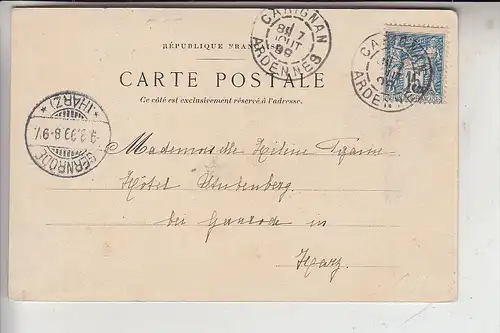 RÉPUBLIQUE FRANÇAISE
CARTE POSTALE
Ce côté est exclusivement réservé à l'adresse.
CARIGNAN
7
AOUT
99
ARDENNES
15
GERNRODE
9.8.99.8-9V.
*(HARZ)*
Mademoiselle Hélène
Hôtel Stubenberg
bei in
Harz